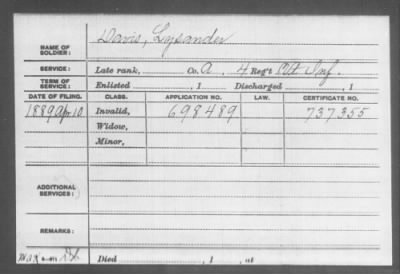 NAME OF SOLDIER: Davis, Lysander
SERVICE: Late rank, Co. A, 4 Reg't Vt. Inf.
TERM OF SERVICE: Enlisted , 1 Discharged , 1
DATE OF FILING. CLASS. APPLICATION NO. LAW. CERTIFICATE NO.
1889 Apr 10 Invalid, 698489 737355
Widow,
Minor,
ADDITIONAL SERVICES:
REMARKS:
Died , 1 , at